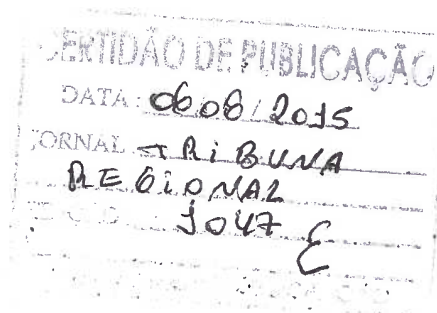 CERTIDÃO DE PUBLICAÇÃO
DATA: 06/08/2015
JORNAL TRIBUNA
REGIONAL
1047